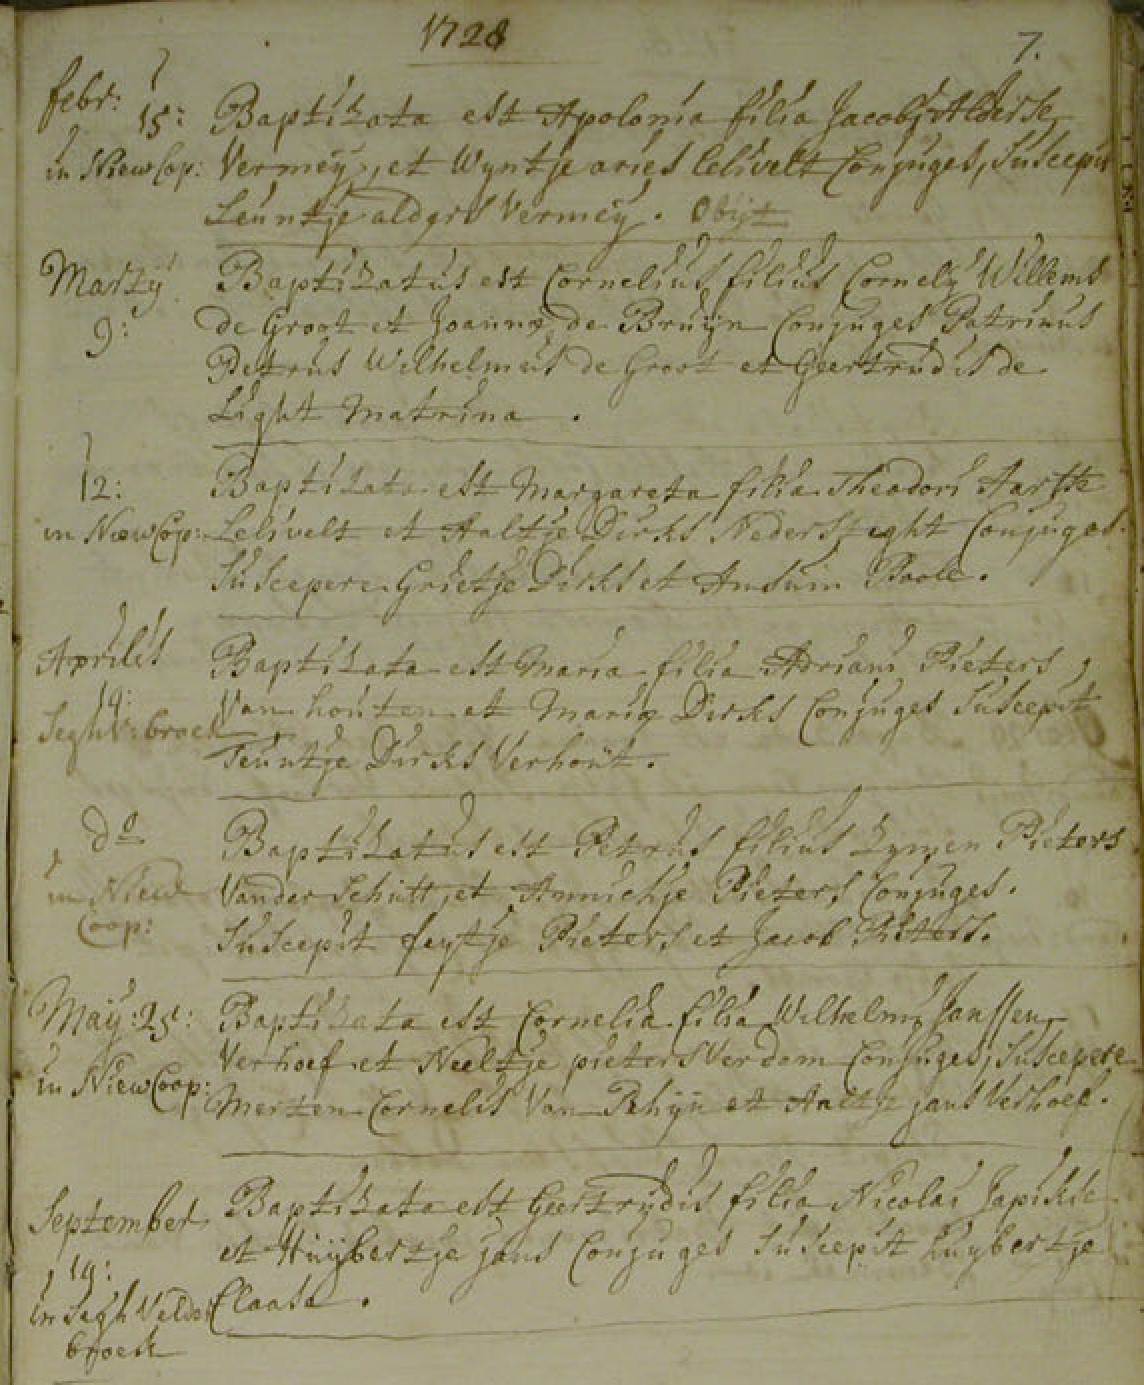 1728
7.
febr: 15: Baptizata est Apolonia filia Jacobi
in NiewCop: Vermeÿ, et Wyntje aries Lelivelt Conjuges, Suscepit
Leuntje aldgris Vermeÿ. Obijt
Martÿ Baptizatus est Cornelius filius Cornelÿ Willems
9: de Groot et Joanna de Bruÿn Conjuges Patrinus
Petrus Wilhelmus de Groot et Geertrudis de
Light Matrina.
12: Baptizata est Margareta filia Theodori
in NiewCop: Lelivelt et Aaltje Dirks Conjuges
Suscepere Grietje Dirks et
Aprilis Baptizata est Maria filia Adriani Pieters
Van houten et Maria Dirks Conjuges Suscepit
Seghv: broek
Teuntje Dirks Verhout.
do Baptizatus est Petrus filius Zymen Pieters
in Niew Vander Schutt, et Annichje Pieters Conjuges.
Coop: Suscepit feytje Pieters et Jacob Pieters.
Maÿ: 25: Baptizata est Cornelia filia Wilhelmi Janssen
Verhoef et Neeltje pieters Verdam Conjuges, Suscepere
in NiewCoop: Merten Cornelis Van Rhijn et jans Verhoef.
September Baptizata est Geertrÿdis filia Nicolai Japikse
et Huÿbertje jans Conjuges Suscepit huybertje
19:
in Segh Velder Claasse.
broek